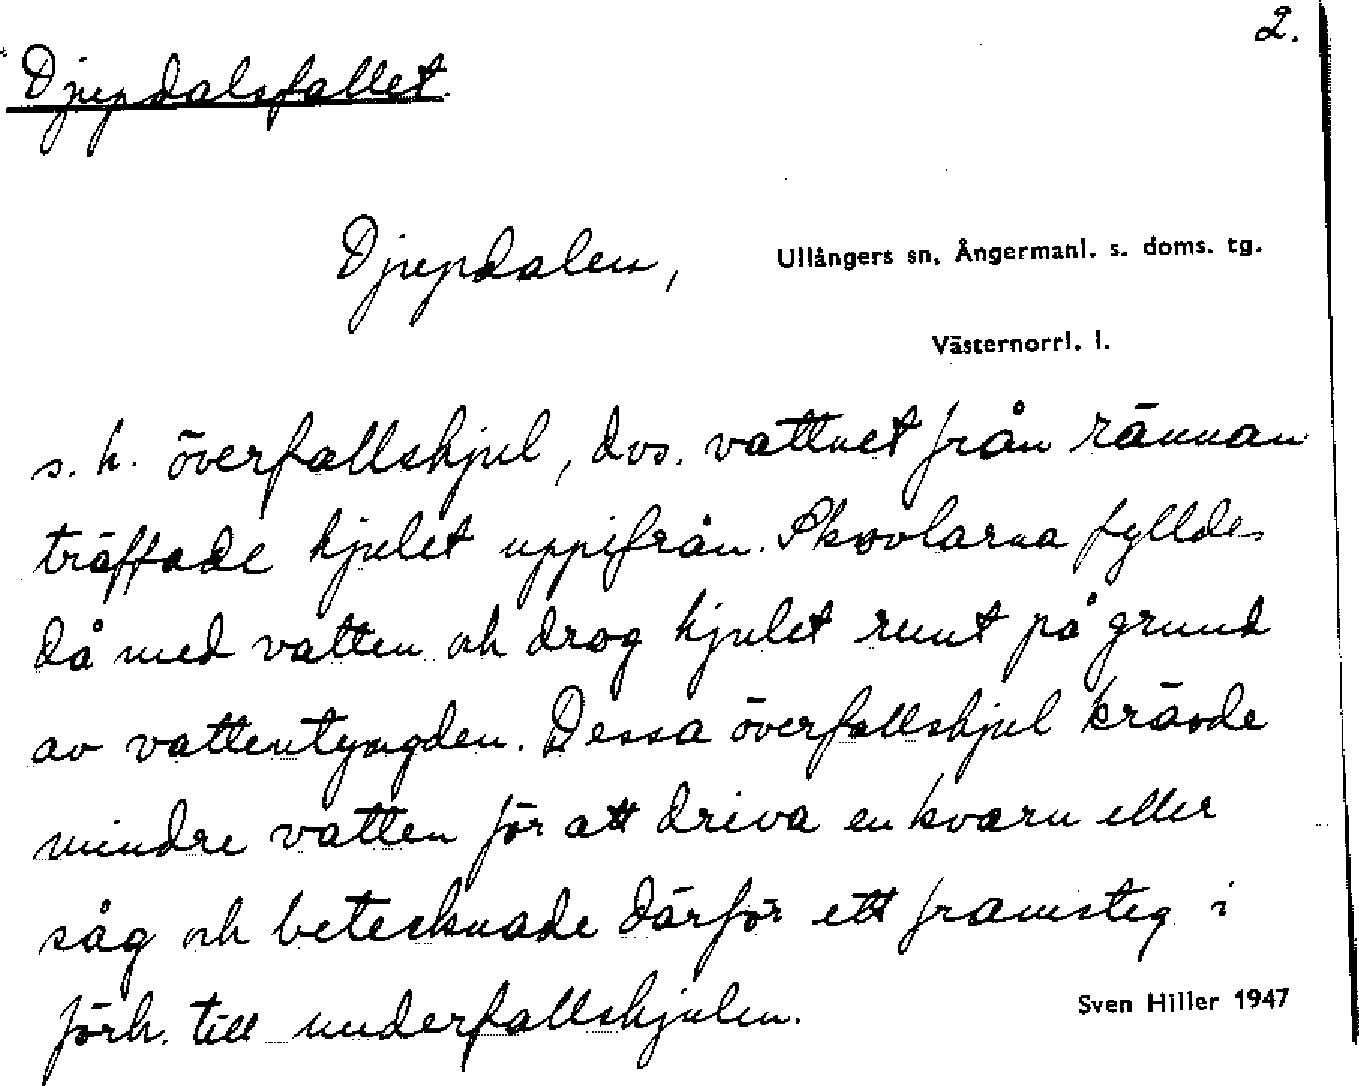 2.
Djupdalsfallet.
Djupdalen, Ullångers sn. Ångermanl. s. doms. tg.
Västernorrl. l.
s. k. överfallshjul, dvs. vattnet från rännan
träffade hjulet uppifrån. Skovlarna fylldes
då med vatten och drog hjulet runt på grund
av vattentyngden. Dessa överfallshjul krävde
mindre vatten för att driva en kvarn eller
såg och betecknade därför ett framsteg i
förh. till underfallshjulen.
Sven Hiller 1947